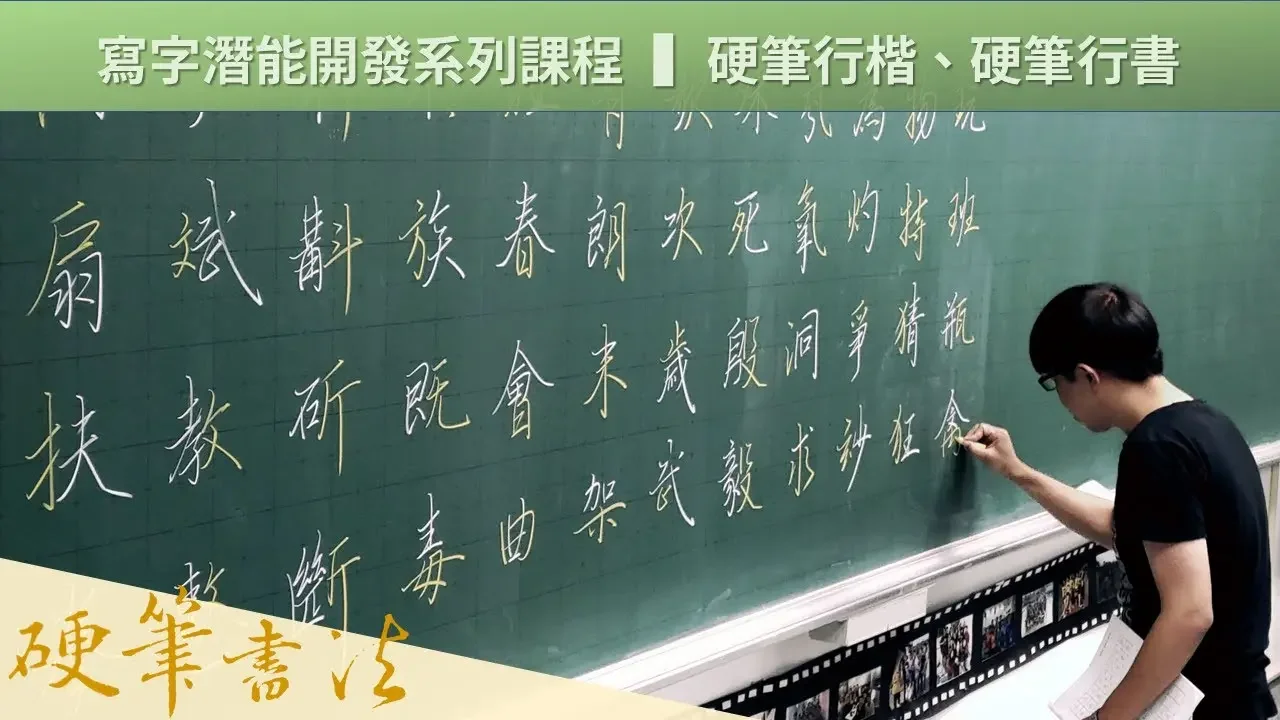 寫字潛能開發系列課程 ▌ 硬筆行楷、硬筆行書
為 物 玩
扇 斌 斟 族 春 朗 次 死 氧 灼 特 班
扶 教 斫 既 會 末 歲 殷 洞 爭 猜 瓶
斷 毒 曲 架 武 毅 求 狂 禽
硬筆書法